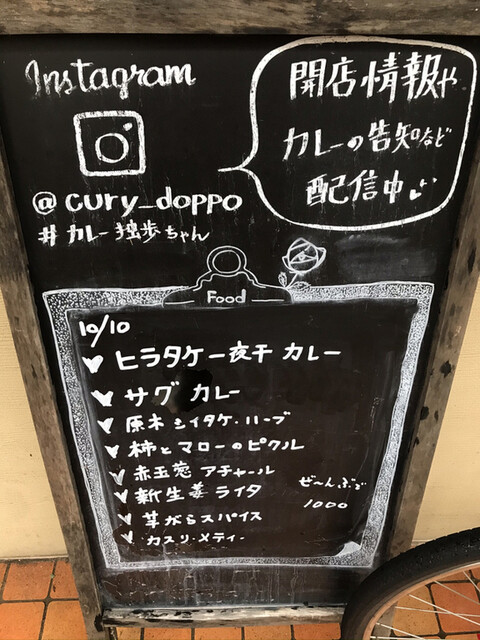 Instagram
@cury_doppo
#カレー独歩ちゃん
開店情報や
カレーの告知など
配信中♪
Food
10/10
ヒラタケ一夜干カレー
サグカレー
原木シイタケ・ハーブ
柿とマローのピクル
赤玉葱アチャール
新生姜ライタ
芋がらスパイス
・カスリ・メティー
ぜ〜んぶで
1000